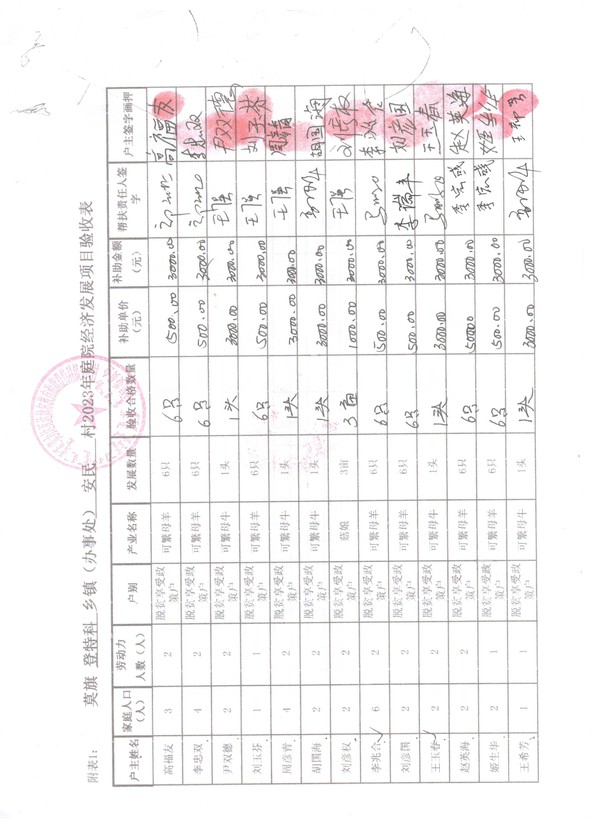 附表1:
莫旗 登特科 乡镇（办事处） 安民 村2023年庭院经济发展项目验收表
户主姓名 家庭人口（人） 劳动力人数（人） 户别 产业名称 发展数量 验收合格数量 补助单价（元） 补助金额（元） 帮扶责任人签字 户主签字画押
高福友 3 2 脱贫享受政策户 可繁母羊 6只 6只 500.00 3000.00 高福友
李忠双 4 2 脱贫享受政策户 可繁母羊 6只 6只 500.00 3000.00 李忠双
尹双德 2 2 脱贫享受政策户 可繁母牛 1头 1头 3000.00 3000.00 王强 尹双德
刘玉芬 1 1 脱贫享受政策户 可繁母羊 6只 6只 500.00 3000.00 王强 刘玉芬
周彦青 4 2 脱贫享受政策户 可繁母牛 1头 1头 3000.00 3000.00 王强
胡国海 2 2 脱贫享受政策户 可繁母牛 1头 1头 3000.00 3000.00 胡国海
刘彦权 2 2 脱贫享受政策户 菇娘 3亩 3亩 1000.00 3000.00 王强
李兆合 6 2 脱贫享受政策户 可繁母羊 6只 6只 500.00 3000.00
刘彦国 2 2 脱贫享受政策户 可繁母羊 6只 6只 500.00 3000.00 李瑞丰 刘彦国
王玉春 2 2 脱贫享受政策户 可繁母牛 1头 1头 3000.00 3000.00 王玉春
赵英海 2 2 脱贫享受政策户 可繁母羊 6只 6只 500.00 3000.00 李宏成 赵英海
姬生华 2 1 脱贫享受政策户 可繁母羊 6只 6只 500.00 3000.00 李宏成 姬生华
王希芳 1 1 脱贫享受政策户 可繁母牛 1头 1头 3000.00 3000.00